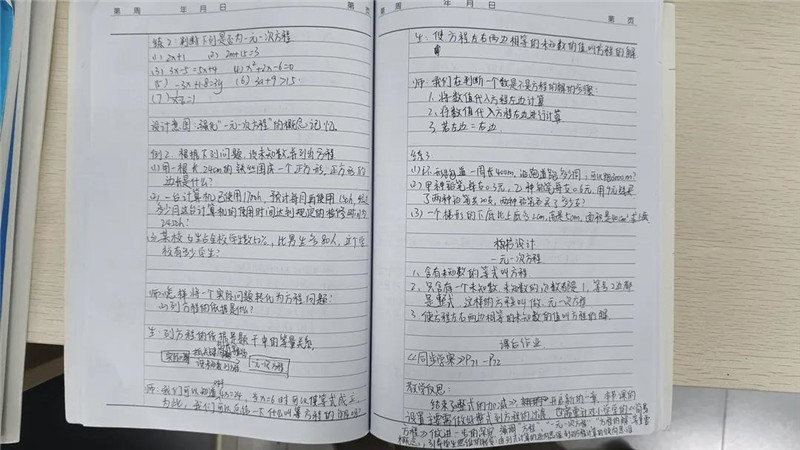 第 周 年 月 日
练2 判断下列是否为一元一次方程
(1) 2x+1 (2) 2m+15=3
(3) 3x-5=5x+4 (4) x²+2x-6=0
(5) -3x+1.8=3y (6) 3a+9>15
设计意图：强化"一元一次方程"的概念记忆.
例2 根据下列问题，设未知数并列出方程
(1) 用一根长24cm的铁丝围成一个正方形，正方形的
边长是什么？
2) 一台计算机已使用1700h，预计每月再使用150h，经过
多少月这台计算机的使用时间达到规定的检修时间
2450h？
某校女生占全校学生数52%，比男生多80人，这个学
校有多少学生？
师：怎样将一个实际问题转化为方程问题？
列方程的依据是什么？
生：列方程的依据是题干中的等量关系.
实际问题 一元一次方程
师：我们可以知道4x=24，当x=6时可以使等式成立
为此，我们可以总结一下什么叫等方程的
年 月 日 第 页
生：使方程左右两边相等的未知数的值叫方程的解
师：我们在判断一个数是不是方程的解的步骤：
1. 将数值代入方程左边计算
2. 将数值代入方程右边进行计算
3. 若左边=右边
练3
一周长400m，沿跑道跑多少周，可以跑3000m？
(2) 甲种铅笔每支0.3元，乙种铅笔每支0.6元，用9元钱买
了两种铅笔共20支，两种铅笔各买了多少支？
(3) 一个梯形的下底比上底多2cm，高是5cm，面积是40cm²，求上底
板书设计
一元一次方程
1. 含有未知数的等式叫方程
2. 只含有一个未知数，未知数的次数都是1，等号2边都
是整式，这样的方程叫做一元一次方程
3. 使方程左右两边相等的未知数的值叫方程的解
课后作业
《同步学案》P71-P72
教学反思：
结束了整式的加减 开启新的一章，本节课的
设置主要需做好整式到方程的过渡